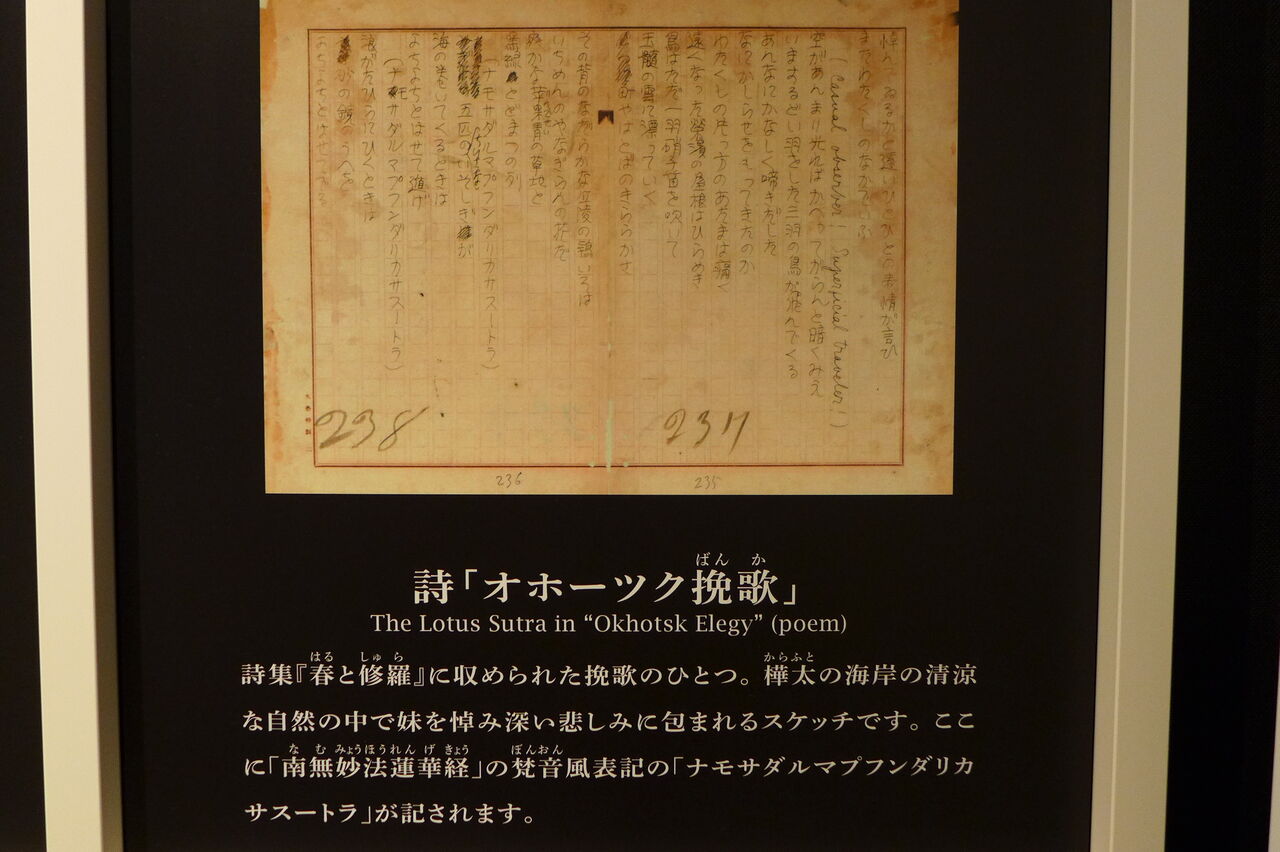 悼んでゐるかと遠いひとびとの表情が言ひ
またわたくしのなかでいふ
(Casual observer! Superficial traveler!)
空があんまり光ればかへつてがらんと暗くみえ
いまするどい羽をした三羽の鳥が飛んでくる
あんなにかなしく啼きだした
なにかしらせをもってきたのか
わたくしの片っ方のあたまは痛く
遠くなった栄浜の屋根はひらめき
鳥はただ一羽硝子笛を吹いて
玉髄の雲に漂っていく
町やはとばのきららかさ
その背のなだらかな丘陵の鴇いろは
いちめんのやなぎらんの花だ
爽やかな苹果青の草地と
黒緑とどまつの列
(ナモサダルマプフンダリカサスートラ)
五匹のちいさないそしぎが
海の巻いてくるときは
よちよちとはせて遁げ
(ナモサダルマプフンダリカサスートラ)
浪がたひらにひくときは
砂の鏡のうへを
よちよちとはせてでる
237
238
235
236
詩「オホーツク挽歌」
The Lotus Sutra in “Okhotsk Elegy” (poem)
詩集『春と修羅』に収められた挽歌のひとつ。樺太の海岸の清涼
な自然の中で妹を悼み深い悲しみに包まれるスケッチです。ここ
に「南無妙法蓮華経」の梵音風表記の「ナモサダルマプフンダリカ
サスートラ」が記されます。